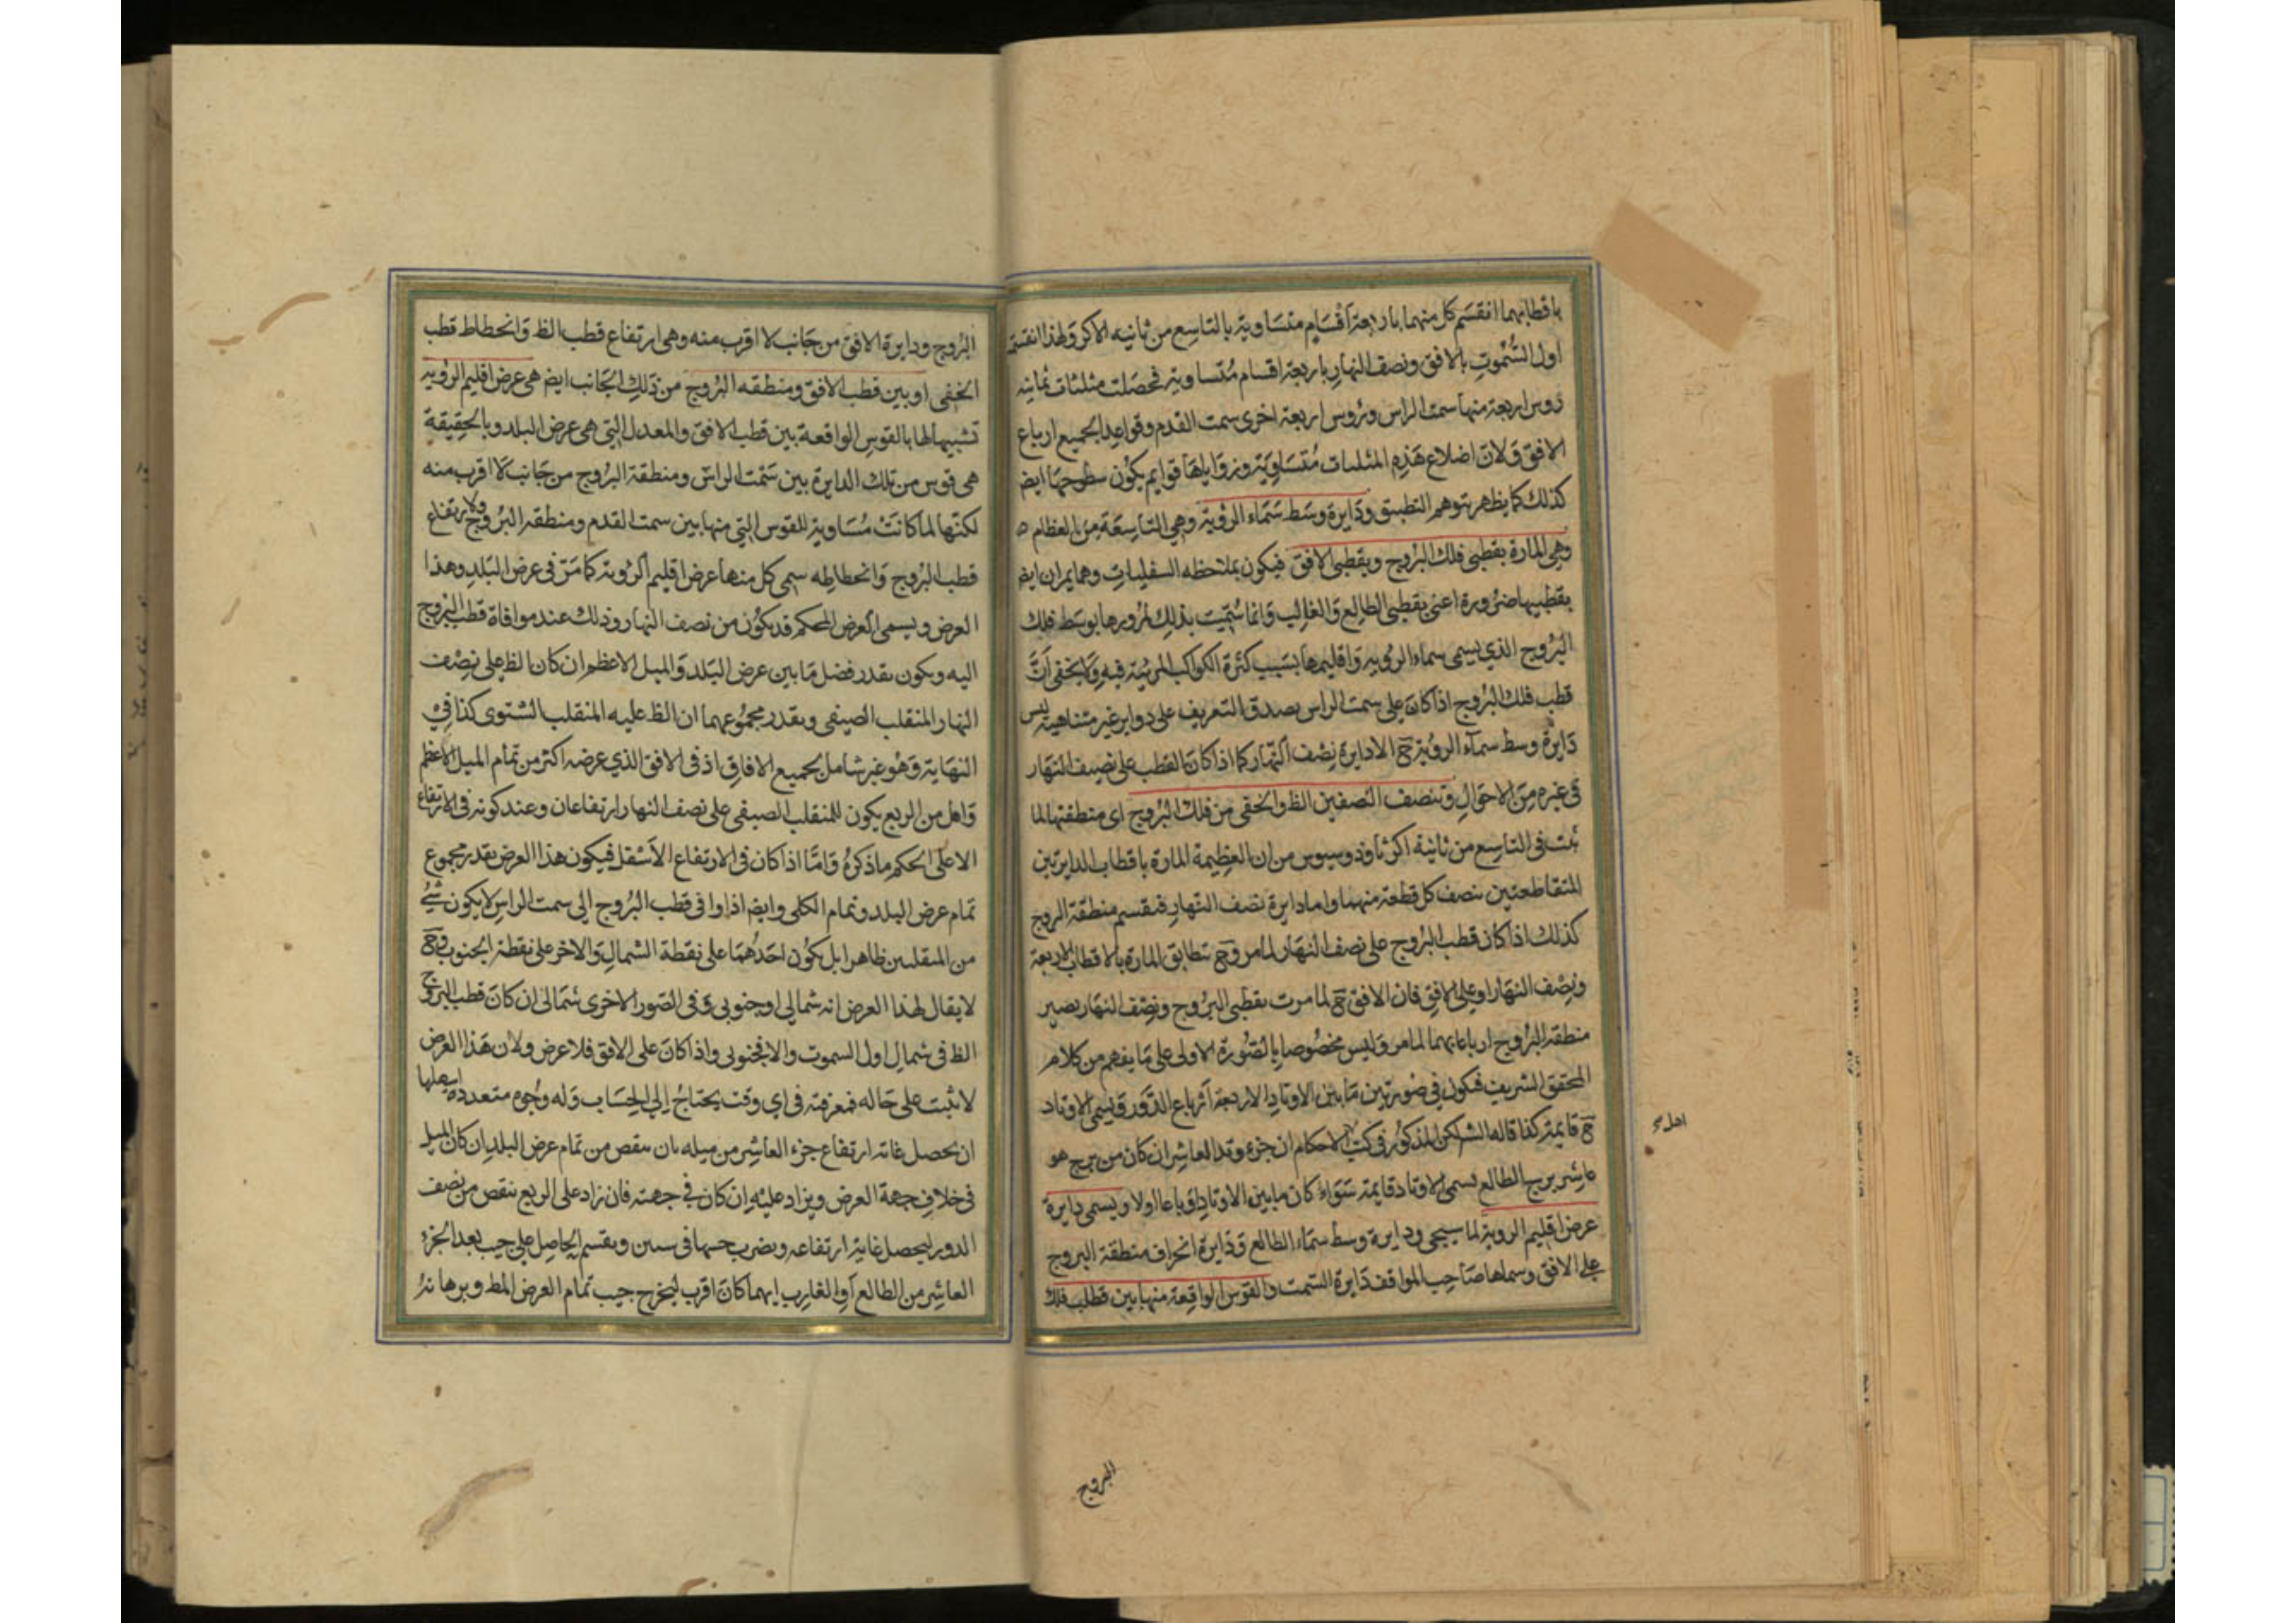 باقطابهما انقسم كل منهما باربعة اقسام متساوية بالتاسع من ثانية الاكر ولهذا انقسم
اول السموت بالافق ونصف النهار باربعة اقسام متساوية فحصلت مثلثات ثمانية
رؤس اربعة منها سمت الراس ورؤس اربعة اخرى سمت القدم وقواعد الجميع ارباع
الافق ولان اضلاع هذه المثلثات متساوية وزواياها قوايم يكون سطوحها ايض
كذلك كما يظهر بتوهم التطبيق ودايرة وسط سماء الرؤية وهي التاسعة من العظام
وهي المارة بقطبي فلك البروج وبقطبي الافق فيكون بملاحظه السفليات وهما يمران ايض
بقطبيها ضرورة اعني بقطبي الطالع والغارب وانما سميت بذلك لمرورها بوسط فلك
البروج الذي يسمى سماء الرؤية واقليمها بسبب كثرة الكواكب المرئية فيه ولا يخفى ان
قطب فلك البروج اذا كان على سمت الراس يصدق التعريف على دواير غير متناهية ليس
دايرة وسط سماء الرؤية ح الا دايرة نصف النهار كما اذا كان القطب على نصف النهار
في غيره من الاحوال وتنصف النصفين الظ والخفي من فلك البروج اي منطقتها لما
ثبت في التاسع من ثانية اكر ثاوذوسيوس من ان العظيمة المارة باقطاب الدايرتين
المتقاطعتين تنصف كل قطعة منهما واما دايرة نصف النهار فتقسم منطقة البروج
كذلك اذا كان قطب البروج على نصف النهار لما مر وح تطابق المارة بالاقطاب الاربعة
ونصف النهار او على الافق فان الافق ح لما مرت بقطبي البروج ونصف النهار يصير
منطقة البروج ارباعا بهما لما مر وليس مخصوصا بالصورة الاولى على ما يفهم من كلام
المحقق الشريف فيكون في صورتين ما بين الاوتاد الاربعة ارباع الدور ويسمى الاوتاد
ح قايمة كذا قاله الش لكن المذكور في كتب الاحكام ان جزء وتد العاشر ان كان من برج هو
اهل
عاشر برج الطالع يسمى الاوتاد قايمة سواء كان ما بين الاوتاد ارباعا اولا ويسمى دايرة
عرض اقليم الروية لما سيجي ودايرة وسط سماء الطالع ودايرة انحراف منطقة البروج
على الافق وسماها صاحب المواقف دايرة السمت والقوس الواقعة منها بين قطب فلك
البروج
البروج ودايرة الافق من جانب لا اقرب منه وهي ارتفاع قطب الظ وانحطاط قطب
الخفي او بين قطب الافق ومنطقه البروج من ذلك الجانب ايض هي عرض اقليم الرؤية
تشبيها لها بالقوس الواقعة بين قطب الافق والمعدل التي هي عرض البلد وبالحقيقة
هي قوس من تلك الدايرة بين سمت الراس ومنطقة البروج من جانب لا اقرب منه
لكنها لما كانت مساوية للقوس التي منها بين سمت القدم ومنطقة البروج ولارتفاع
قطب البروج وانحطاطه سمي كل منها عرض اقليم الرؤية كما مر في عرض البلد وهذا
العرض ويسمى العرض المحكم قد يكون من نصف النهار وذلك عند موافاة قطب البروج
اليه ويكون بقدر فضل ما بين عرض البلد والميل الاعظم ان كان الظ على نصف
النهار المنقلب الصيفي وبقدر مجموعهما ان الظ عليه المنقلب الشتوي كذا في
النهاية وهو غير شامل لجميع الافاق اذ في الافق الذي عرضه اكثر من تمام الميل الاعظم
واقل من الربع يكون للمنقلب الصيفي على نصف النهار ارتفاعان وعند كونه في الارتفاع
الاعلى الحكم ما ذكره واما اذا كان في الارتفاع الاسفل فيكون هذا العرض بقدر مجموع
تمام عرض البلد وتمام الكلي وايض اذا وافى قطب البروج الى سمت الراس لا يكون شئ
من المنقلبين ظاهرا بل يكون احدهما على نقطة الشمال والاخر على نقطة الجنوب وح
لا يقال لهذا العرض انه شمالي او جنوبي وفي الصور الاخرى شمالي ان كان قطب البروج
الظ في شمال اول السموت والا فجنوبي واذا كان على الافق فلا عرض ولان هذا العرض
لا يثبت على حاله فمعرفته في اي وقت يحتاج الى الحساب وله وجوه متعددة اسهلها
ان يحصل غاية ارتفاع جزء العاشر من ميله بان ينقص من تمام عرض البلد ان كان الميل
في خلاف جهة العرض ويزاد عليه ان كان في جهته فان زاد على الربع ينقص من نصف
الدور ليحصل غاية ارتفاعه ويضرب جيبها في ستين ويقسم الحاصل على جيب بعد الجزء
العاشر من الطالع او الغارب ايهما كان اقرب ليخرج جيب تمام العرض المط وبرهانه